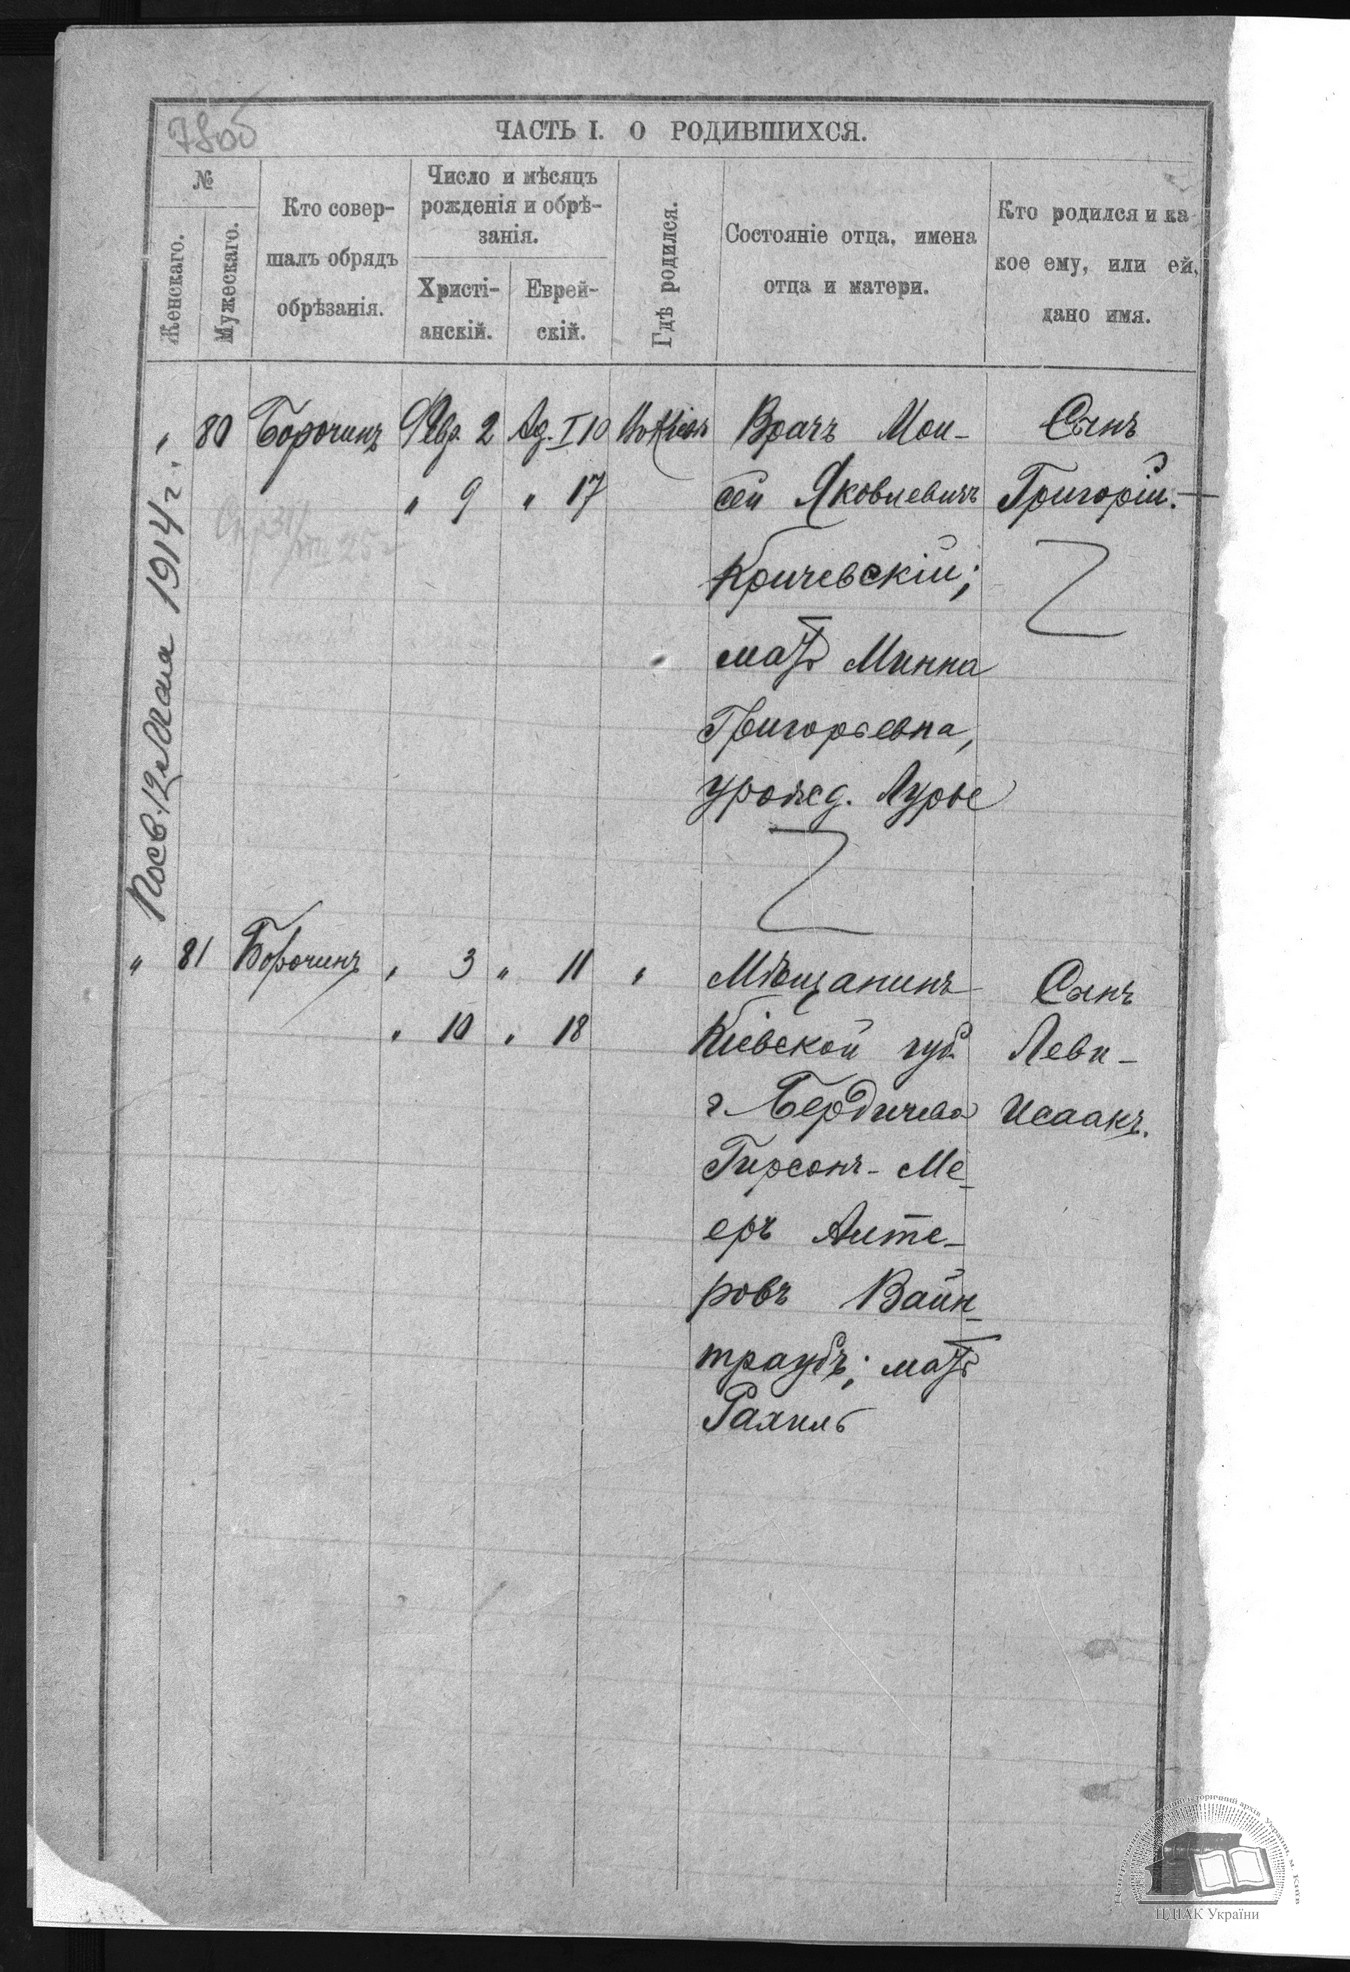 78об
ЧАСТЬ I. О РОДИВШИХСЯ.
№
Женскаго.
Мужескаго.
Кто совер-
шалъ обрядъ
обрѣзанія.
Число и мѣсяцъ
рожденія и обрѣ-
занія.
Христі-
анскій.
Еврей-
скій.
Гдѣ родился.
Состояніе отца, имена
отца и матери.
Кто родился и ка
кое ему, или ей,
дано имя.
" 80 Борочинъ Февр. 2 Ад. I 10 Въ Кіевѣ
" 9 " 17
Врачъ Мои-
сей Яковлевичъ
Кричевскій;
мать Минна
Григорьевна,
урожд. Лурье
Сынъ
Григорій.
Посв. 12 Мая 1914 г.
" 81 Борочинъ " 3 " 11 "
" 10 " 18
Мѣщанинъ
Кіевской губ.
г. Бердичева
Гирсонъ-Ме-
еръ Алте-
ровъ Вайн-
траубъ; мать
Рахиль
Сынъ
Леви-
Исаакъ.
ЦДІАК України